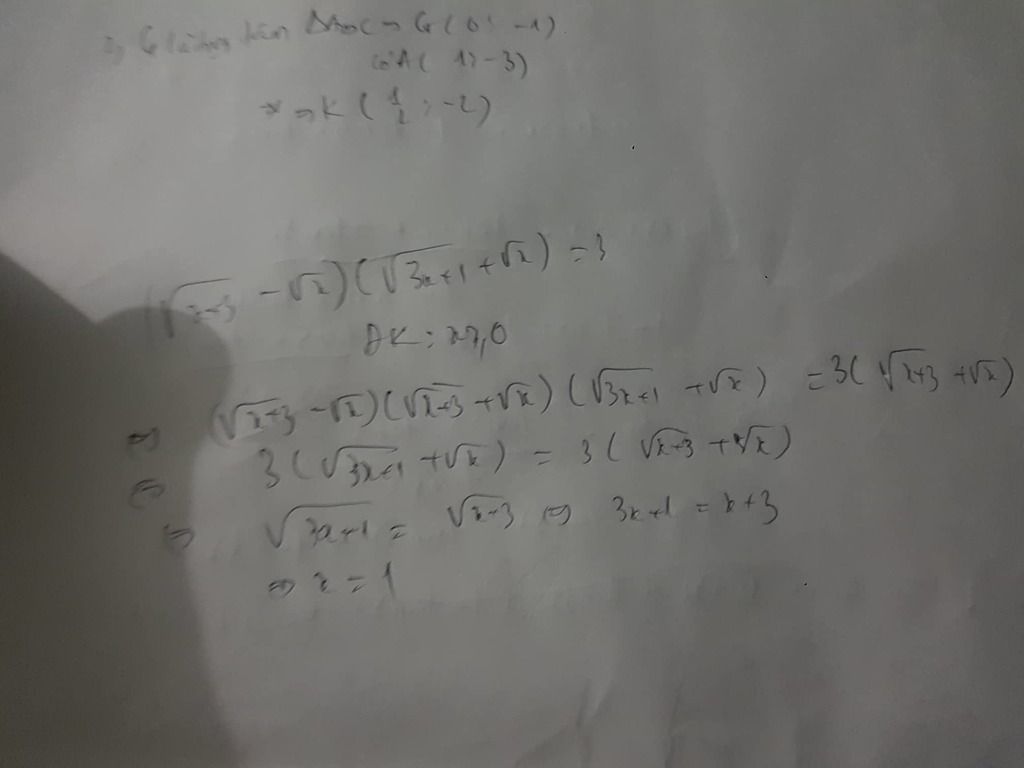 G ΔABC ⇒ G(0; -1)
có A(1; -3)
* ⇒ K(1/2; -2)
(√x+3 - √x)(√3x+1 + √x) = 3
ĐK: x ≥ 0
⇔ (√x+3 - √x)(√x+3 + √x)(√3x+1 + √x) = 3(√x+3 + √x)
⇔ 3(√3x+1 + √x) = 3(√x+3 + √x)
⇔ √3x+1 = √x+3 ⇔ 3x+1 = x+3
⇔ x = 1